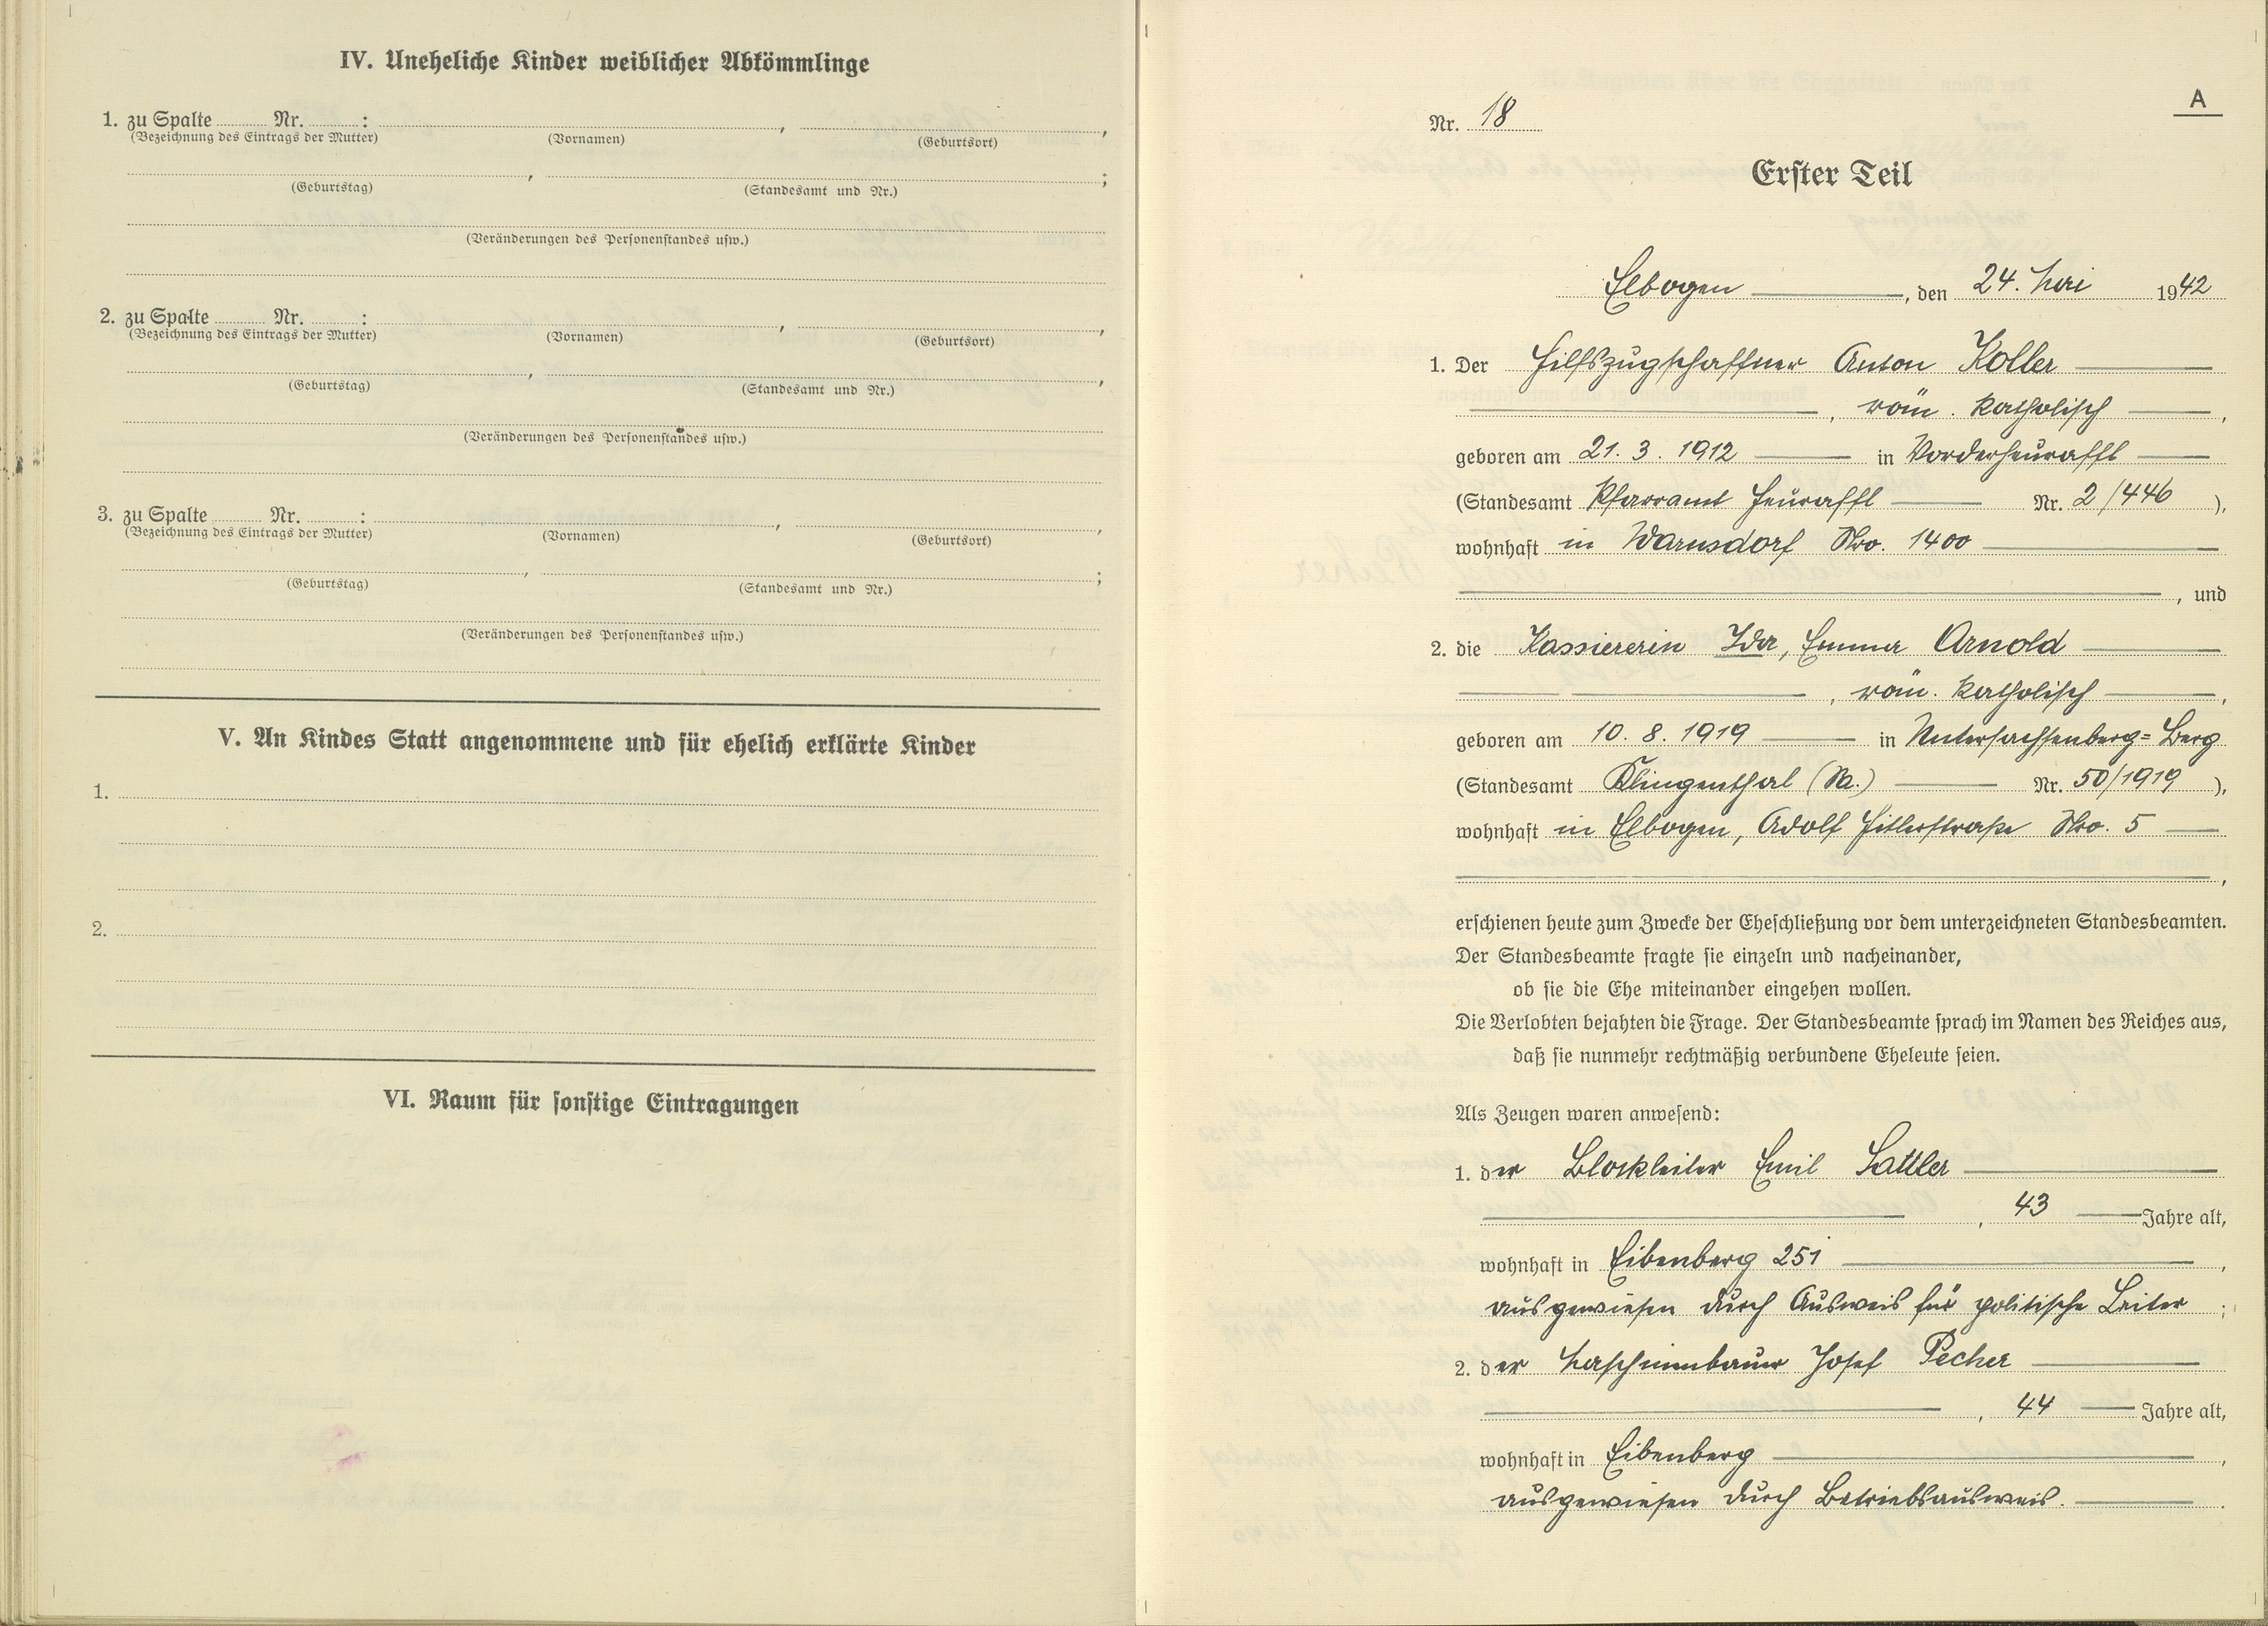 IV. Uneheliche Kinder weiblicher Abkömmlinge
1. zu Spalte Nr. : , ,
(Bezeichnung des Eintrags der Mutter) (Vornamen) (Geburtsort)
, ;
(Geburtstag) (Standesamt und Nr.)
(Veränderungen des Personenstandes usw.)
2. zu Spalte Nr. : , ,
(Bezeichnung des Eintrags der Mutter) (Vornamen) (Geburtsort)
, ,
(Geburtstag) (Standesamt und Nr.)
(Veränderungen des Personenstandes usw.)
3. zu Spalte Nr. : , ,
(Bezeichnung des Eintrags der Mutter) (Vornamen) (Geburtsort)
, ;
(Geburtstag) (Standesamt und Nr.)
(Veränderungen des Personenstandes usw.)
V. An Kindes Statt angenommene und für ehelich erklärte Kinder
1.
2.
VI. Raum für sonstige Eintragungen
A
Nr. 18
Erster Teil
Elbogen, den 24. Mai 1942
1. Der Hilfszugschaffner Anton Koller
, röm. katholisch,
geboren am 21. 3. 1912 in Vorderheuraffl
(Standesamt Pfarramt Heuraffl Nr. 2/446),
wohnhaft in Warnsdorf Nro. 1400
, und
2. die Kassiererin Ida, Emma Arnold
, röm. katholisch,
geboren am 10. 8. 1919 in Untersachsenberg=Berg
(Standesamt Klingenthal (Sa.) Nr. 50/1919),
wohnhaft in Elbogen, Adolf Hitlerstraße Nro. 5
,
erschienen heute zum Zwecke der Eheschließung vor dem unterzeichneten Standesbeamten.
Der Standesbeamte fragte sie einzeln und nacheinander,
ob sie die Ehe miteinander eingehen wollen.
Die Verlobten bejahten die Frage. Der Standesbeamte sprach im Namen des Reiches aus,
daß sie nunmehr rechtmäßig verbundene Eheleute seien.
Als Zeugen waren anwesend:
1. der Blockleiter Emil Sattler
, 43 Jahre alt,
wohnhaft in Eibenberg 251,
ausgewiesen durch Ausweis für politische Leiter;
2. der Maschinenbauer Josef Pecher
, 44 Jahre alt,
wohnhaft in Eibenberg,
ausgewiesen durch Betriebsausweis.